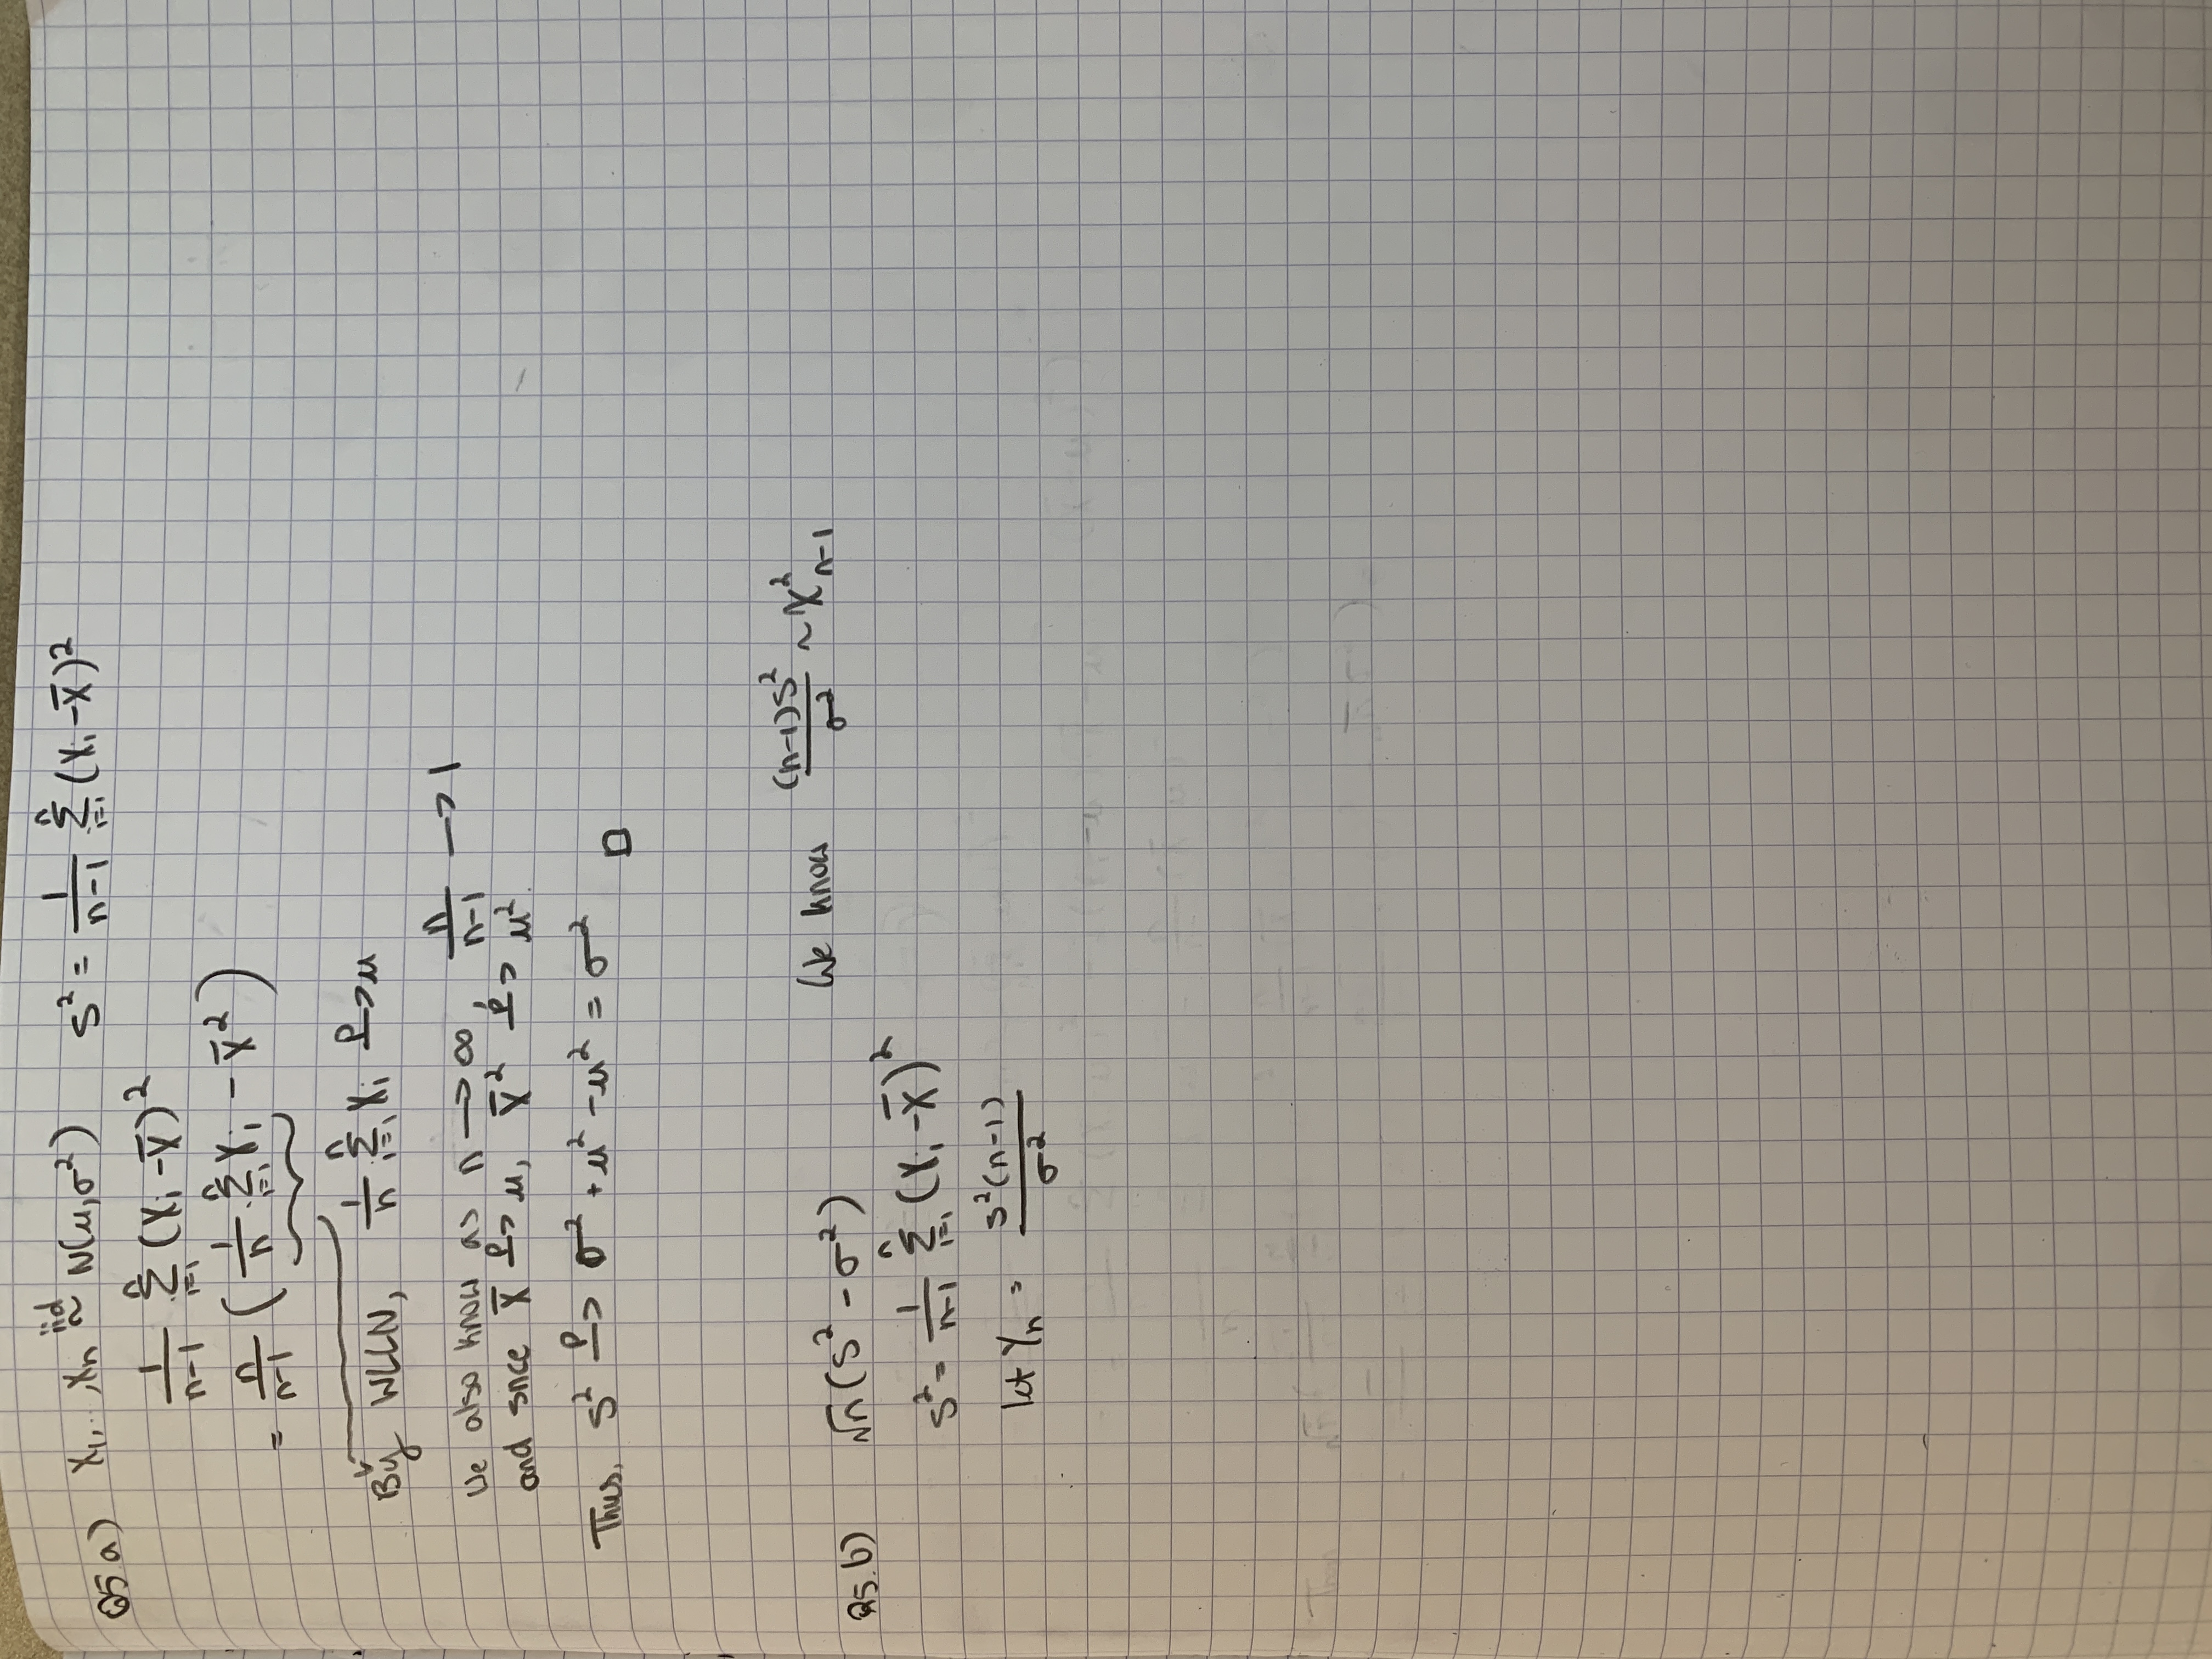 Q5 a) X₁, .. ,Xn iid ~ N(μ,σ²) S² = 1/(n-1) Σᵢ₌₁ⁿ (Xᵢ - X̄)²
1/(n-1) Σᵢ₌₁ⁿ (Xᵢ - X̄)²
= n/(n-1) ( 1/n Σᵢ₌₁ⁿ Xᵢ - X̄² )
By WLLN, 1/n Σᵢ₌₁ⁿ Xᵢ P-> μ
We also know as n -> ∞, n/(n-1) -> 1
and snce X̄ P-> μ, X̄² P-> μ².
Thus, S² P-> σ² + μ² - μ² = σ² □
Q5.b) √n (S² - σ²) We know (n-1)S²/σ² ~ χ²n-1
S² = 1/(n-1) Σᵢ₌₁ⁿ (Xᵢ - X̄)²
let Yn = S²(n-1)/σ²